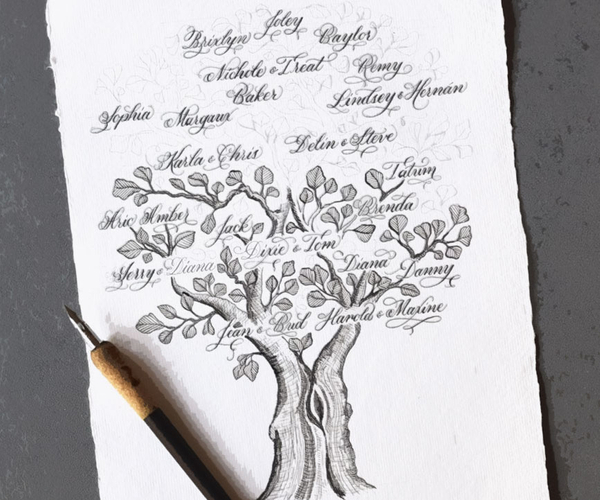 Joley
Brixlyn Baylor
Nichole & Treat Remy
Baker Lindsey & Hernán
Sophia Margaux
Delin & Steve
Karla & Chris
Tatum
Aric Amber Brenda
Jack
Dixie & Tom
Jerry & Diana Diana Danny
Jean & Bud Harold & Maxine